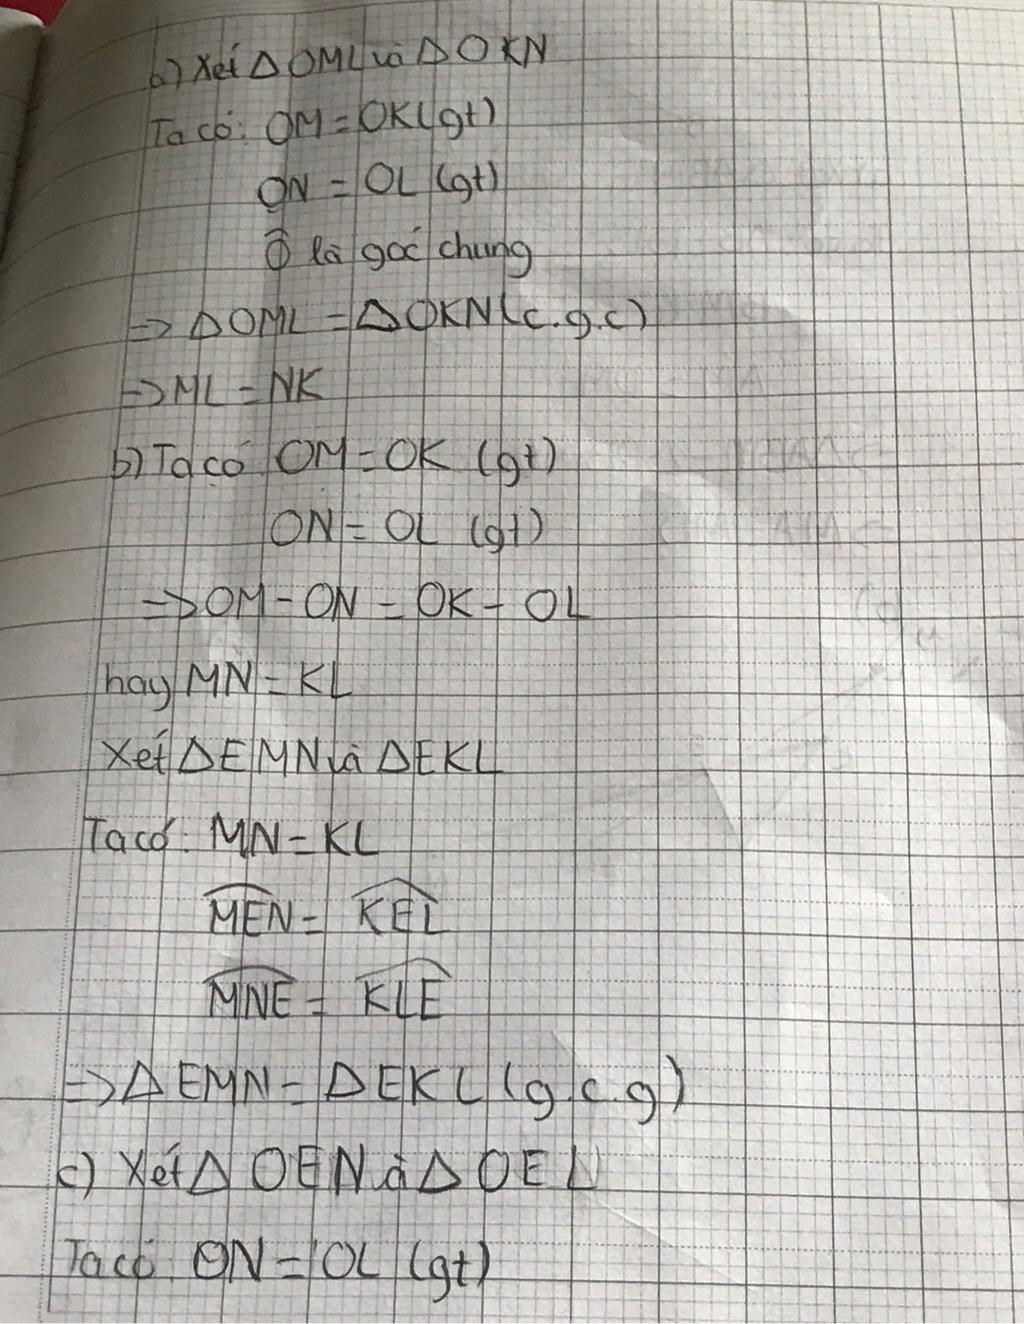 a) Xét Δ OML và Δ OKN
Ta có: OM = OK (gt)
ON = OL (gt)
Ô là góc chung
=> Δ OML = Δ OKN (c.g.c)
=> ML = NK
b) Ta có OM = OK (gt)
ON = OL (gt)
=> OM - ON = OK - OL
hay MN = KL
Xét Δ EMN và Δ EKL
Ta có: MN = KL
MEN = KEL
MNE = KLE
=> Δ EMN = Δ EKL (g.c.g)
c) Xét Δ OEN và Δ OEL
Ta có: ON = OL (gt)